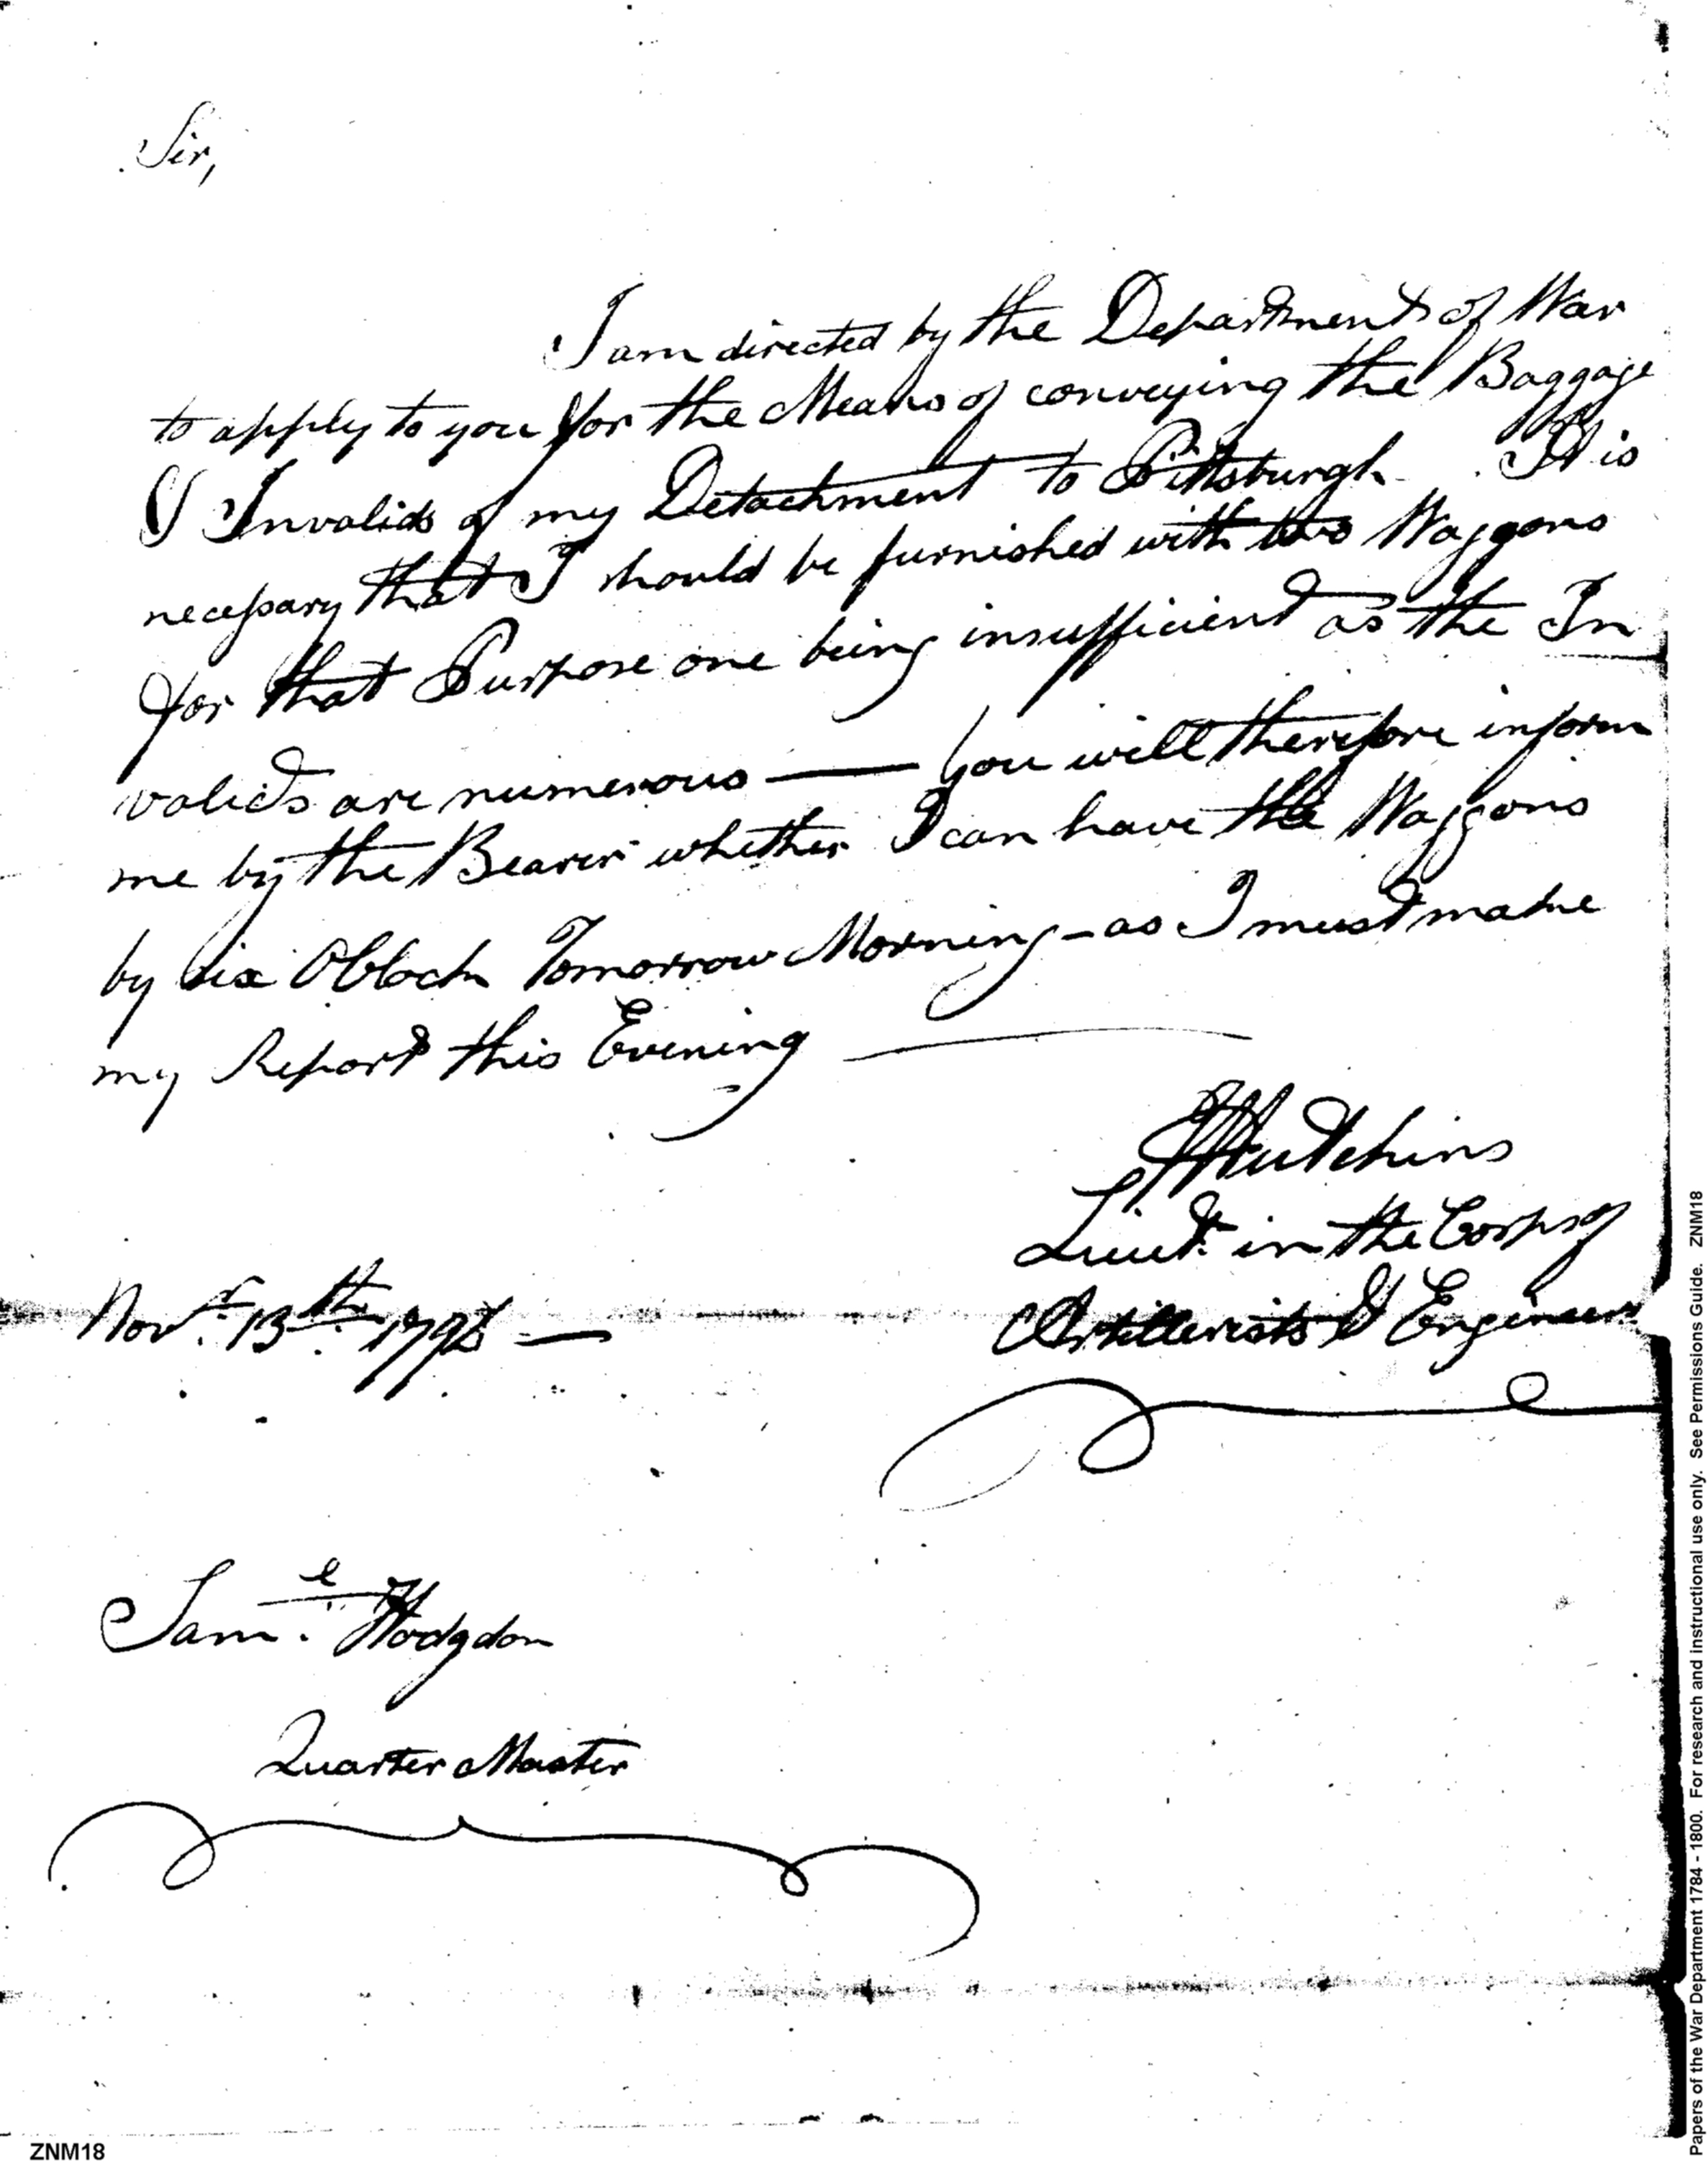 Sir,
I am directed by the Department of War
to apply to you for the Means of conveying the Baggage
& Invalids of my Detachment to Pittsburgh. It is
necessary that I should be furnished with two Waggons
for that Purpose one being insufficient as the In
valids are numerous — You will therefore inform
me by the Bearer whether I can have the Waggons
by six OClock Tomorrow Morning - as I must make
my Report this Evening —
Hutchins
Lieut. in the Corps of
Artillerists & Engineers
Novr. 13th. 179
Saml. Hodgdon
Quarter Master
ZNM18
Papers of the War Department 1784 - 1800. For research and instructional use only. See Permissions Guide. ZNM18